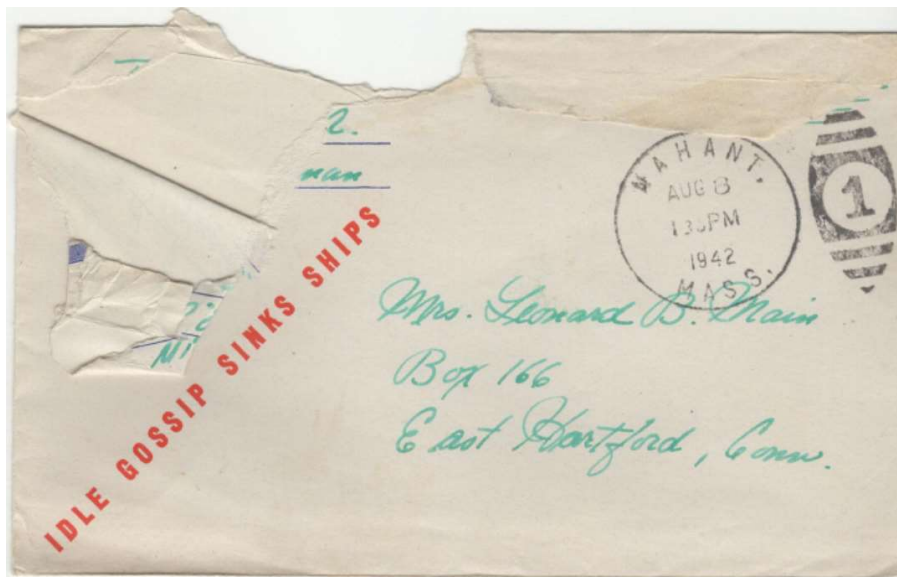 2.
man
NAHANT.
AUG 8
1 30 PM
1942
MASS.
1
IDLE GOSSIP SINKS SHIPS
Mrs. Leonard B. Main
Box 166
East Hartford, Conn.